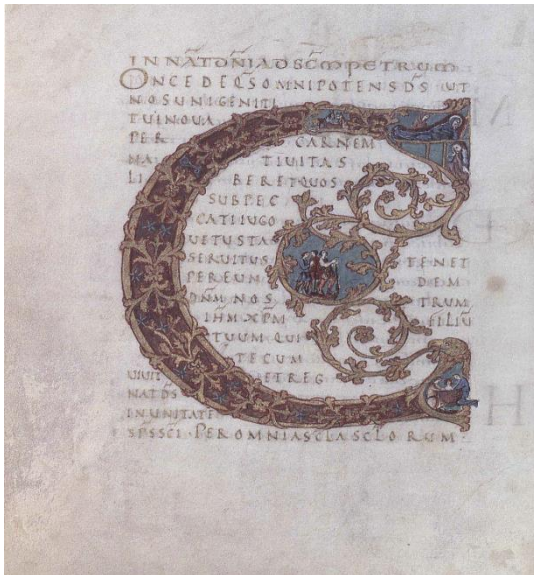 IN NAT DNI AD SCM PETRUM
CONCEDE QS OMNIPOTENS DS UT
NOS UNIGENITI
TUI NOUA
PER CARNEM
NA TIUITAS
LI BERET QUOS
SUB PEC
CATI IUGO
UETUSTA
SERUITUS TENET
PER EUN DEM
DNM NOS TRUM
IHM XPM FILIU
TUUM QUI
TECUM
UIUIT ET REG
NAT DS
IN UNITATE
SPS SCI PER OMNIA SCLA SCLORUM